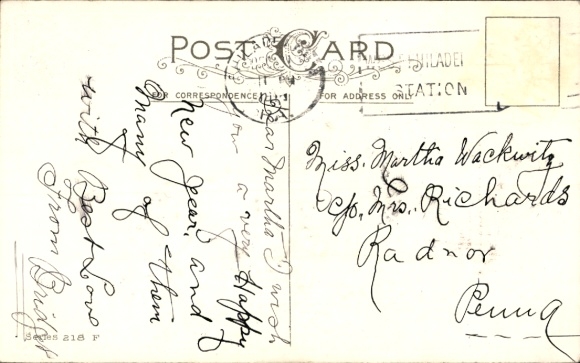 POST CARD
FOR CORRESPONDENCE
FOR ADDRESS ONLY
PHILADEL
STATION
Dear Martha I wish
you a very Happy
New year and
Many of them
with Best Love
From Bridget
Miss. Martha Wackwitz
c/o, Mrs. Richards
Radnor
Penna
Series 218 F